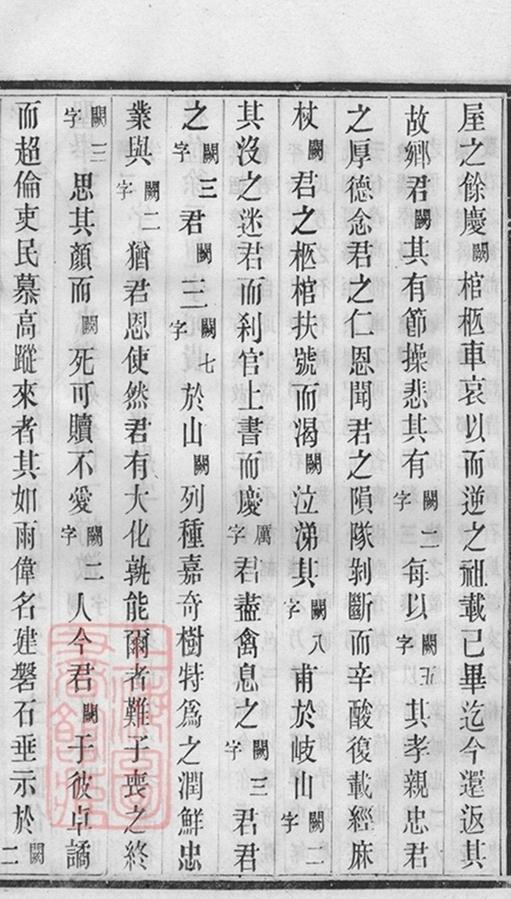 屋之餘慶闕棺柩車哀以而逆之祖載已畢迄今還返其
故鄉君闕其有節操悲其有闕二字每以闕五字其孝親忠君
之厚德念君之仁恩聞君之隕隊剝斷而辛酸復載絰麻
杖闕君之柩棺扶號而渴闕泣涕其闕八字甫於岐山闕二字
其沒之迷君而刹官上書而慶厲字君盡禽息之闕三字君君
之闕三字君闕三字闕七於山闕列種嘉奇樹特爲之潤鮮忠
業與闕二字猶君恩使然君有大化孰能爾者難于喪之終
闕三字思其顏而闕死可贖不愛闕二字人今君闕于彼卓譎
而超倫吏民慕高蹤來者其如雨偉名建磐石垂示於闕二